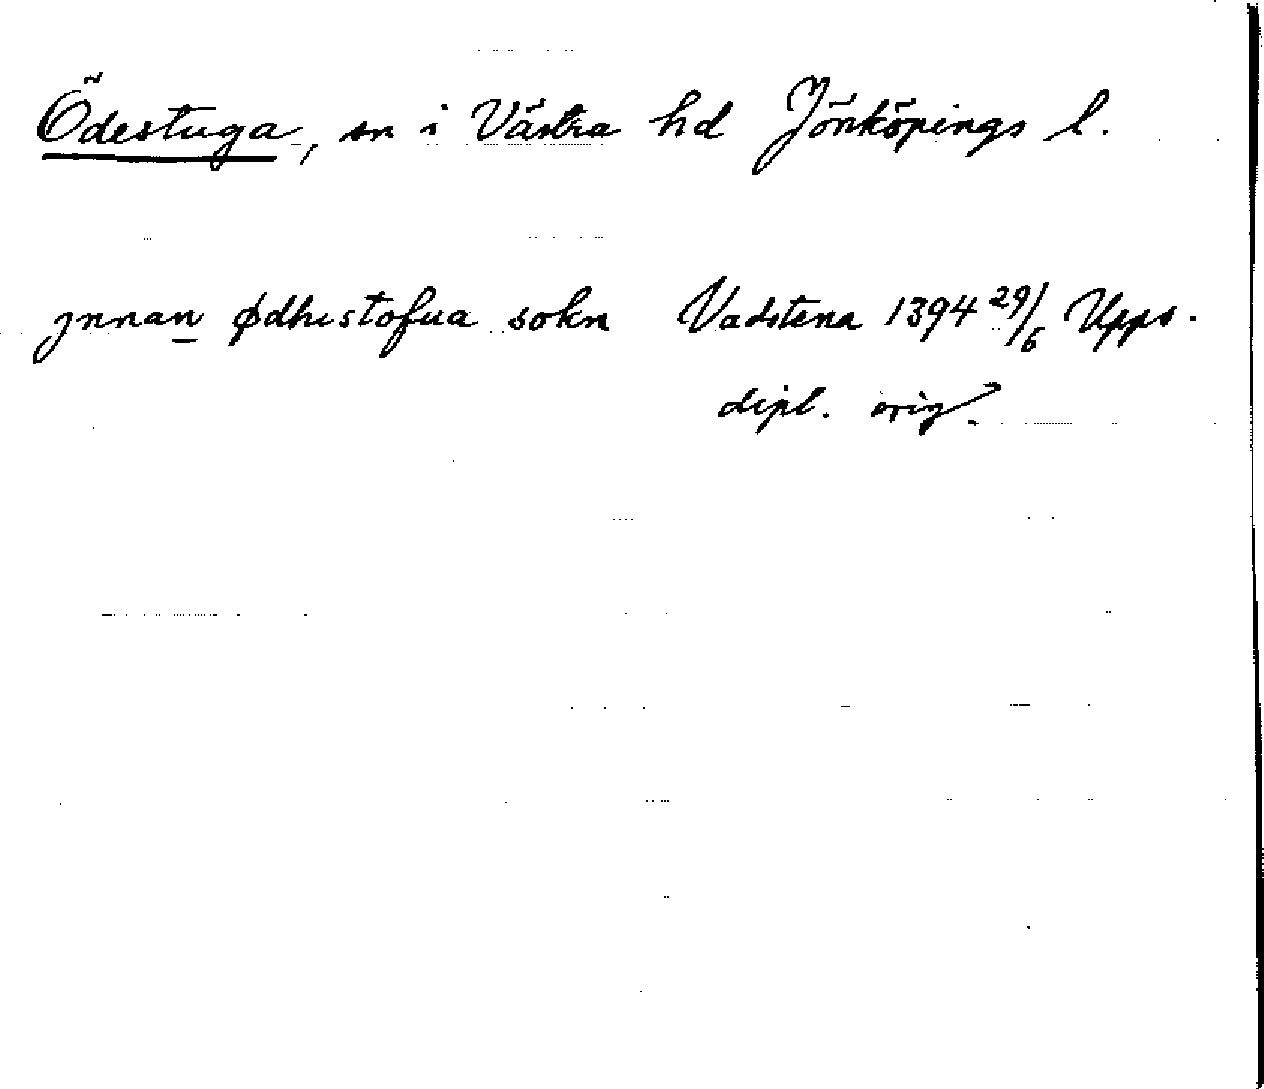 Ödestuga, sn i Västra hd Jönköpings l.
jnnan ødhestofua sokn Vadstena 1394 29/6 Upps.
dipl. orig.